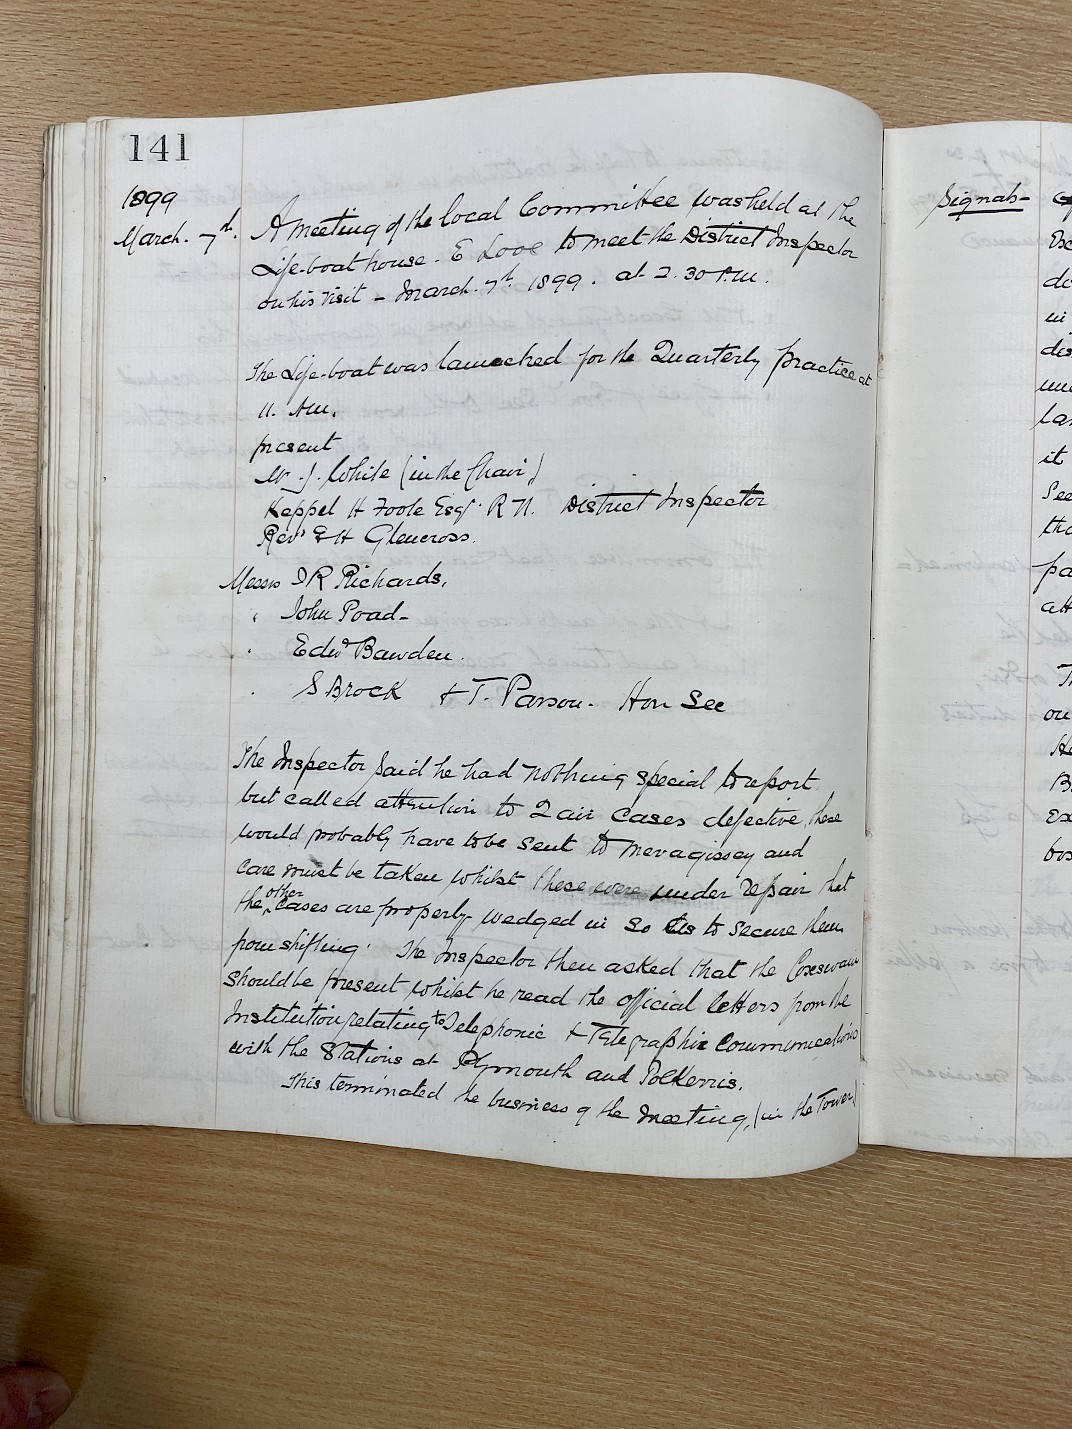 141
1899
March. 7th. A meeting of the local Committee was held at the
Life-boat house. E Looe to meet the District Inspector
on his visit - March. 7th 1899. at 2.30 P.M.
The Life-boat was launched for the Quarterly practice at
11. AM.
present
Mr J. White (in the Chair)
Keppel H Foote Esqr. R N. District Inspector
Revd E H Glencross.
Messrs I R Richards,
" John Poad-
" Edwd Bawden.
" S Brock & T. Parson. Hon Sec
The Inspector said he had nothing special to report
but called attention to 2 air cases defective, these
would probably have to be sent to Mevagissey and
care must be taken whilst these were under repair that
the other cases are properly wedged in so as to secure them
from shifting. The Inspector then asked that the Coxswain
should be present whilst he read the official letters from the
Institution relating to Telephonic & Telegraphic Communications
with the Stations at Plymouth and Polkerris.
This terminated the business of the meeting, (in the Tower)
Signals-
do
in
it
See
pa
ou